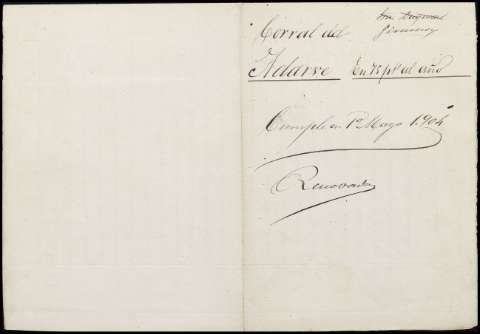 Corral del
Adarve En 75 pts al año
Cumple en 1º Mayo 1.904
Renovado